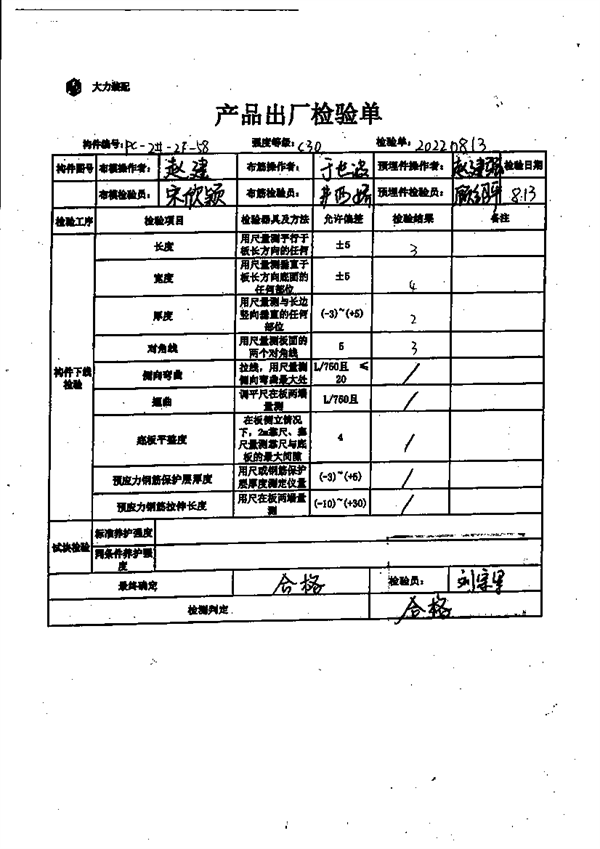 大力装配
产品出厂检验单
构件编号: PC-2#-2F-58 强度等级: C30 检验单: 20220813
构件图号 布模操作者: 赵建 布筋操作者: 预埋件操作者: 赵建强 检验日期
布模检验员: 宋欣颖 布筋检验员: 预埋件检验员: 8.13
检验工序 检验项目 检验器具及方法 允许偏差 检验结果 备注
构件下线检验
长度 用尺量测平行于板长方向的任何 ±5 3
宽度 用尺量测垂直于板长方向底面的任何部位 ±5 4
厚度 用尺量测与长边竖向垂直的任何部位 (-3)~(+5) 2
对角线 用尺量测板面的两个对角线 5 3
侧向弯曲 拉线，用尺量测侧向弯曲最大处 L/750且 ≤20 /
翘曲 调平尺在板两端量测 L/750且 /
底板平整度 在板侧立情况下，2m靠尺、塞尺量测靠尺与底板的最大间隙 4 /
预应力钢筋保护层厚度 用尺或钢筋保护层厚度测定仪量 (-3)~(+5) /
预应力钢筋拉伸长度 用尺在板两端量测 (-10)~(+30) /
试块检验 标准养护强度
同条件养护强度
最终确定 合格 检验员:
检测判定 合格